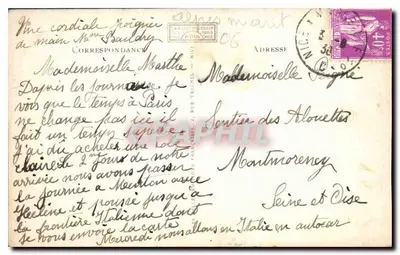 Une cordiale poignée
de main Mme Baudry
alpes marit
06
CORRESPONDANCE
ADRESSE
Mademoiselle Marthe
Dapres les journaux je
vois que le temps à Paris
ne change pas ici il
fait un temps
j'ai dû acheter une robe
claire le 2me jour de notre
arrivée nous avons passer
la journée a Menton avec
Helène et poussé jusqu'a
la frontière Italienne dont
je vous envoie la carte
Mercredi nous allons en Italie en autocar
Mademoiselle
Sentier des Alouettes
Montmorency
Seine et Oise
NICE